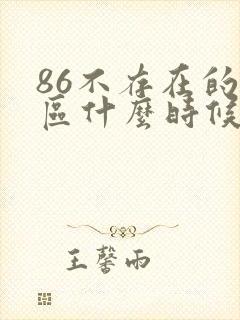 86不存在的
區什麼時候
王馨雨